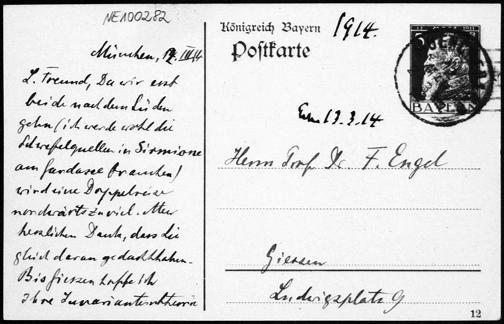 NE100282
München, 12. III. 14
L. Freund, Da wir erst
beide nach dem Süden
gehn (ich werde wohl die
Schwefelquellen in Sirmione
am Gardasee brauchen)
wird eine Doppelreise
nordwärts zu viel. Aber
herzlichen Dank, dass Sie
gleich daran gedacht haben.
Bis Giessen hoffe ich
Ihre Invariantentheorie
Königreich Bayern
Postkarte
1914
5
BAYERN
13.3.14
Herrn Prof. Dr. F. Engel
Giessen
Ludwigsplatz 9
12